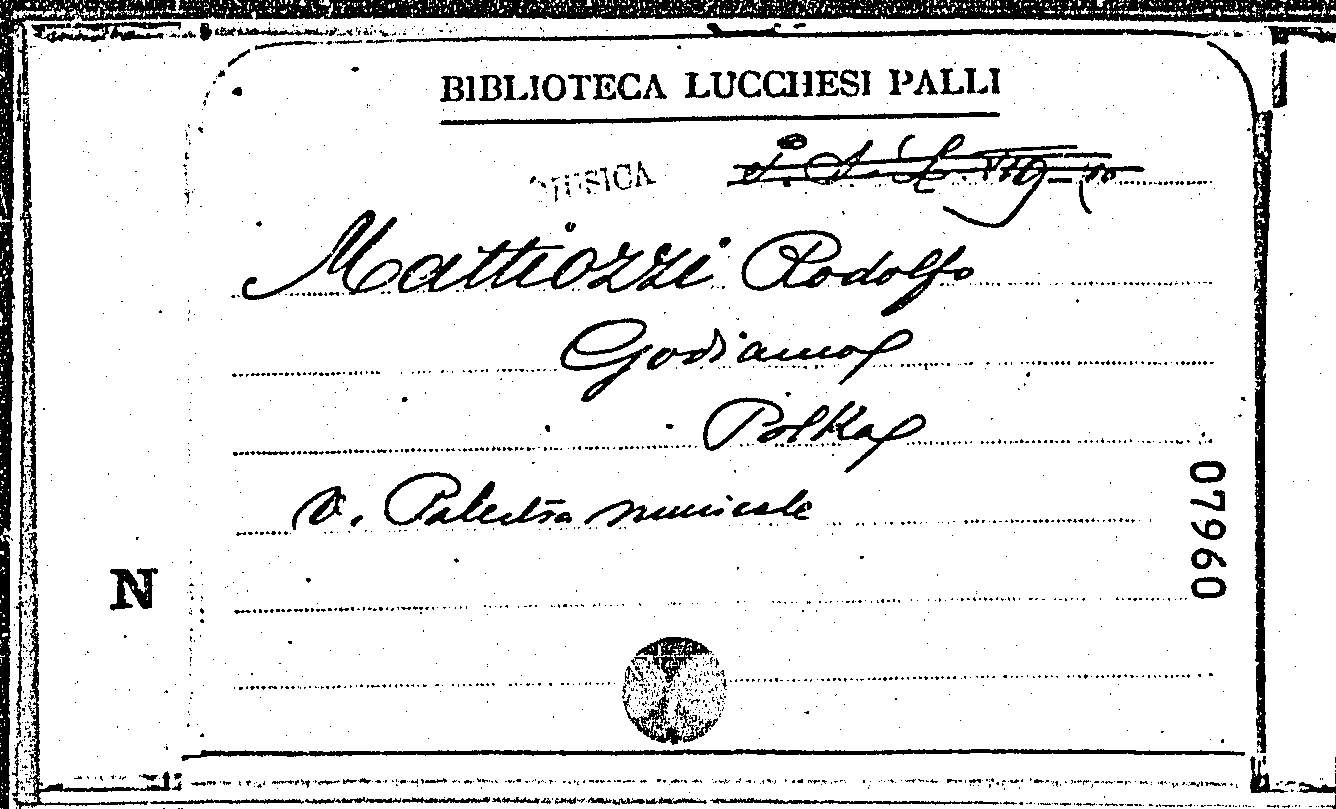 BIBLIOTECA LUCCHESI PALLI
MUSICA
Mattiozzi Rodolfo
Godiamo
Polka
V. Palestra musicale
07960
N